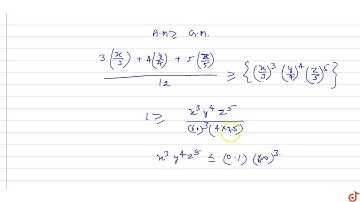 A.M ≥ G.M.
3(x/3) + 4(y/4) + 5(z/5) / 12 ≥ {(x/3)^3 (y/4)^4 (z/5)^5}
1 ≥ x^3 y^4 z^5 / (60)^3 (4×25)
x^3 y^4 z^5 ≤ (0.1) (60)^3